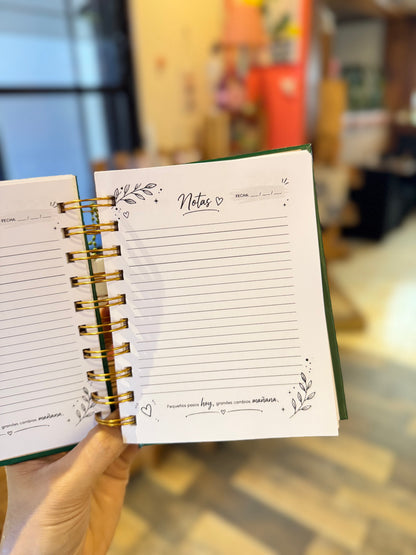 FECHA: __/__/__
grandes cambios mañana.
Notas
FECHA: __/__/__
Pequeños pasos hoy, grandes cambios mañana.